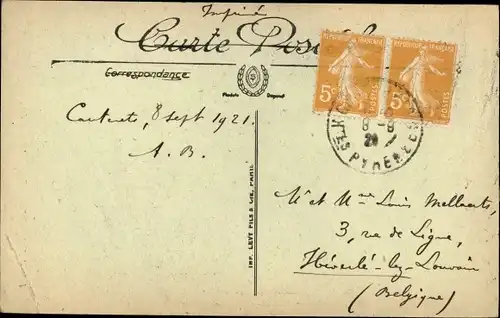 Imprimé
Carte Postale
Correspondance
Produits Deposé
RÉPUBLIQUE FRANÇAISE
RÉPUBLIQUE FRANÇAISE
5c POSTES
5c POSTES
Cauterets, 8 Sept 1921.
A. B.
IMP. LEVY FILS & CIE, PARIS
Mr et Mme Louis Mellaerts
3, rue de Ligne,
Héverlé-lez-Louvain
(Belgique)